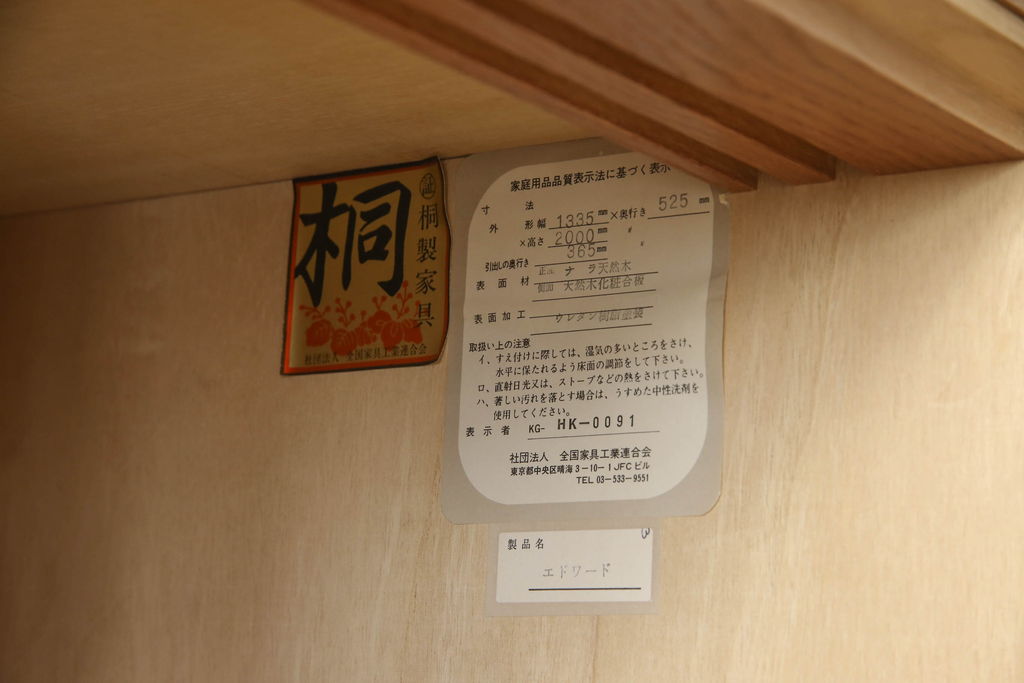 桐
証 桐製家具
社団法人 全国家具工業連合会
家庭用品品質表示法に基づく表示
寸法
外形幅 1335mm×奥行き 525mm
×高さ 2000mm 〃
引出しの奥行き 365mm 〃
表面材 正面 ナラ天然木
側面 天然木化粧合板
表面加工 ウレタン樹脂塗装
取扱い上の注意
イ、すえ付けに際しては、湿気の多いところをさけ、
水平に保たれるよう床面の調節をして下さい。
ロ、直射日光又は、ストーブなどの熱をさけて下さい。
ハ、著しい汚れを落とす場合は、うすめた中性洗剤を
使用してください。
表示者 KG- HK-0091
社団法人 全国家具工業連合会
東京都中央区晴海3-10-1JFCビル
TEL 03-533-9551
製品名
エドワード